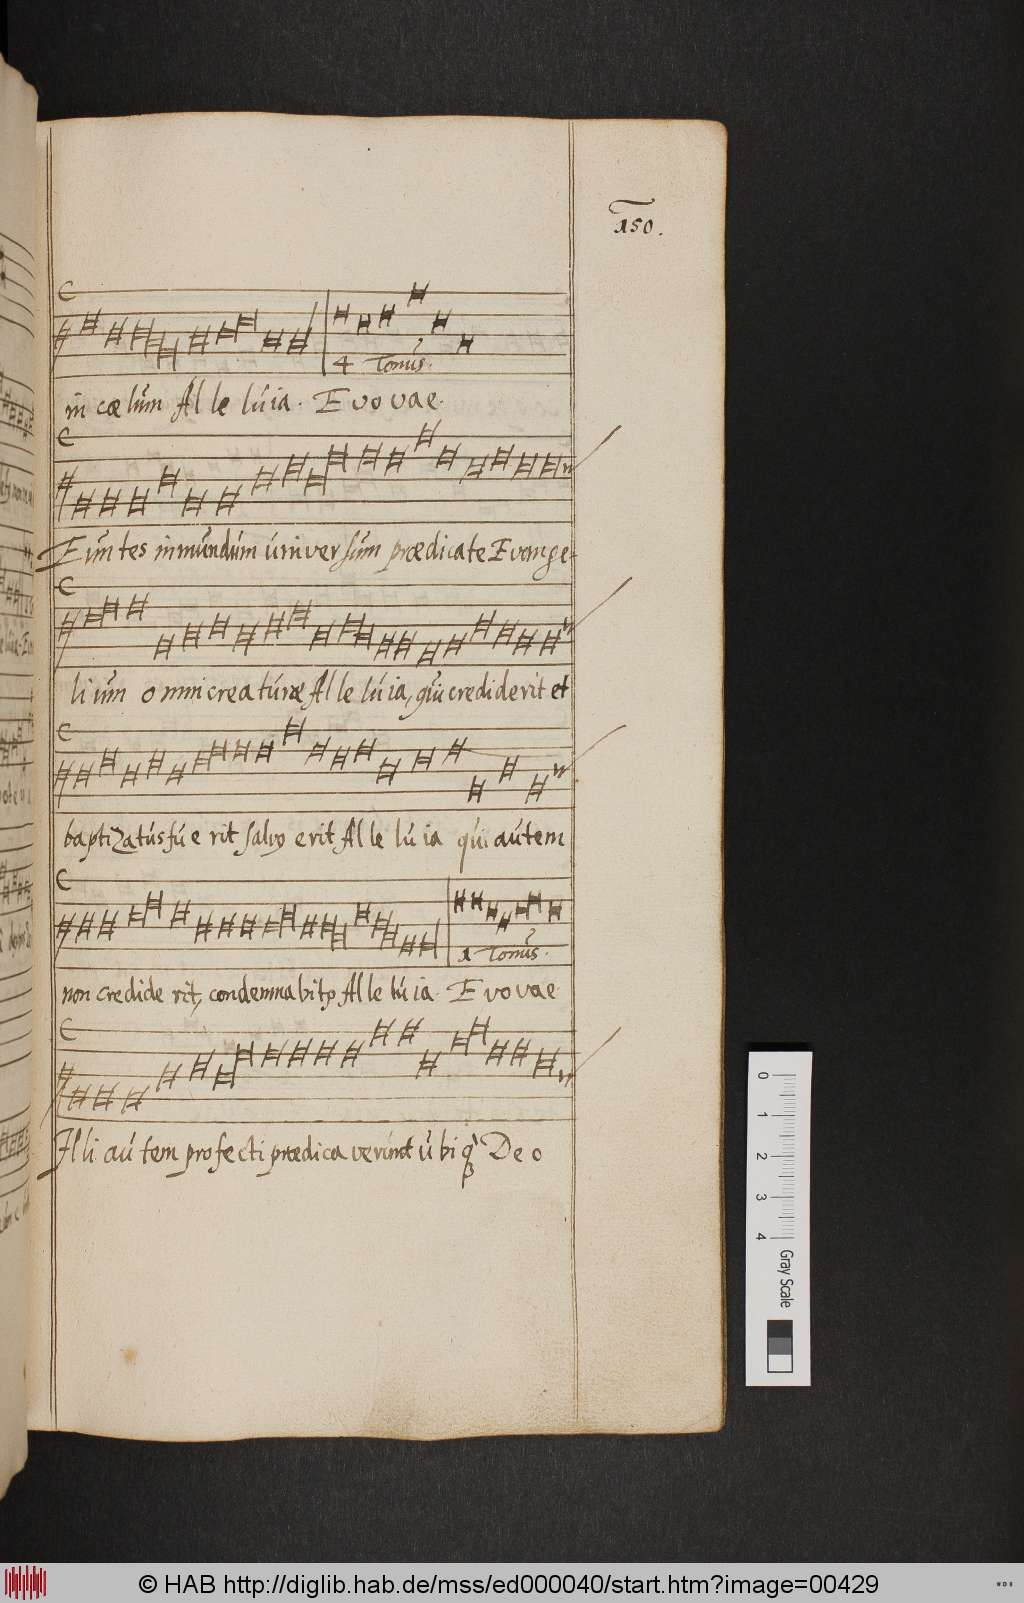 150.
4 Tonus.
in cœlum Al le luia. E vo vae.
Eun tes in mundum univer sum prædicate Evange-
li um omni creaturæ Al le luia, qui crediderit et
baptizatus fu e rit salvꝰ erit Al le lu ia qui autem
1 Tonus.
non credide rit, condemnabitꝛ Al le lu ia. E vo vae
Illi autem profecti prædica verunt ubi qꝫ De o
0
1
2
3
4
Gray Scale
© HAB http://diglib.hab.de/mss/ed000040/start.htm?image=00429